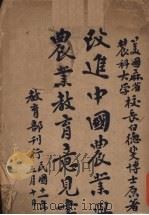 美國麻省
農科大學
校長白德斐博士原著
改進中國農業與
農業教育意見書
教育部刊行
民國十一年三月